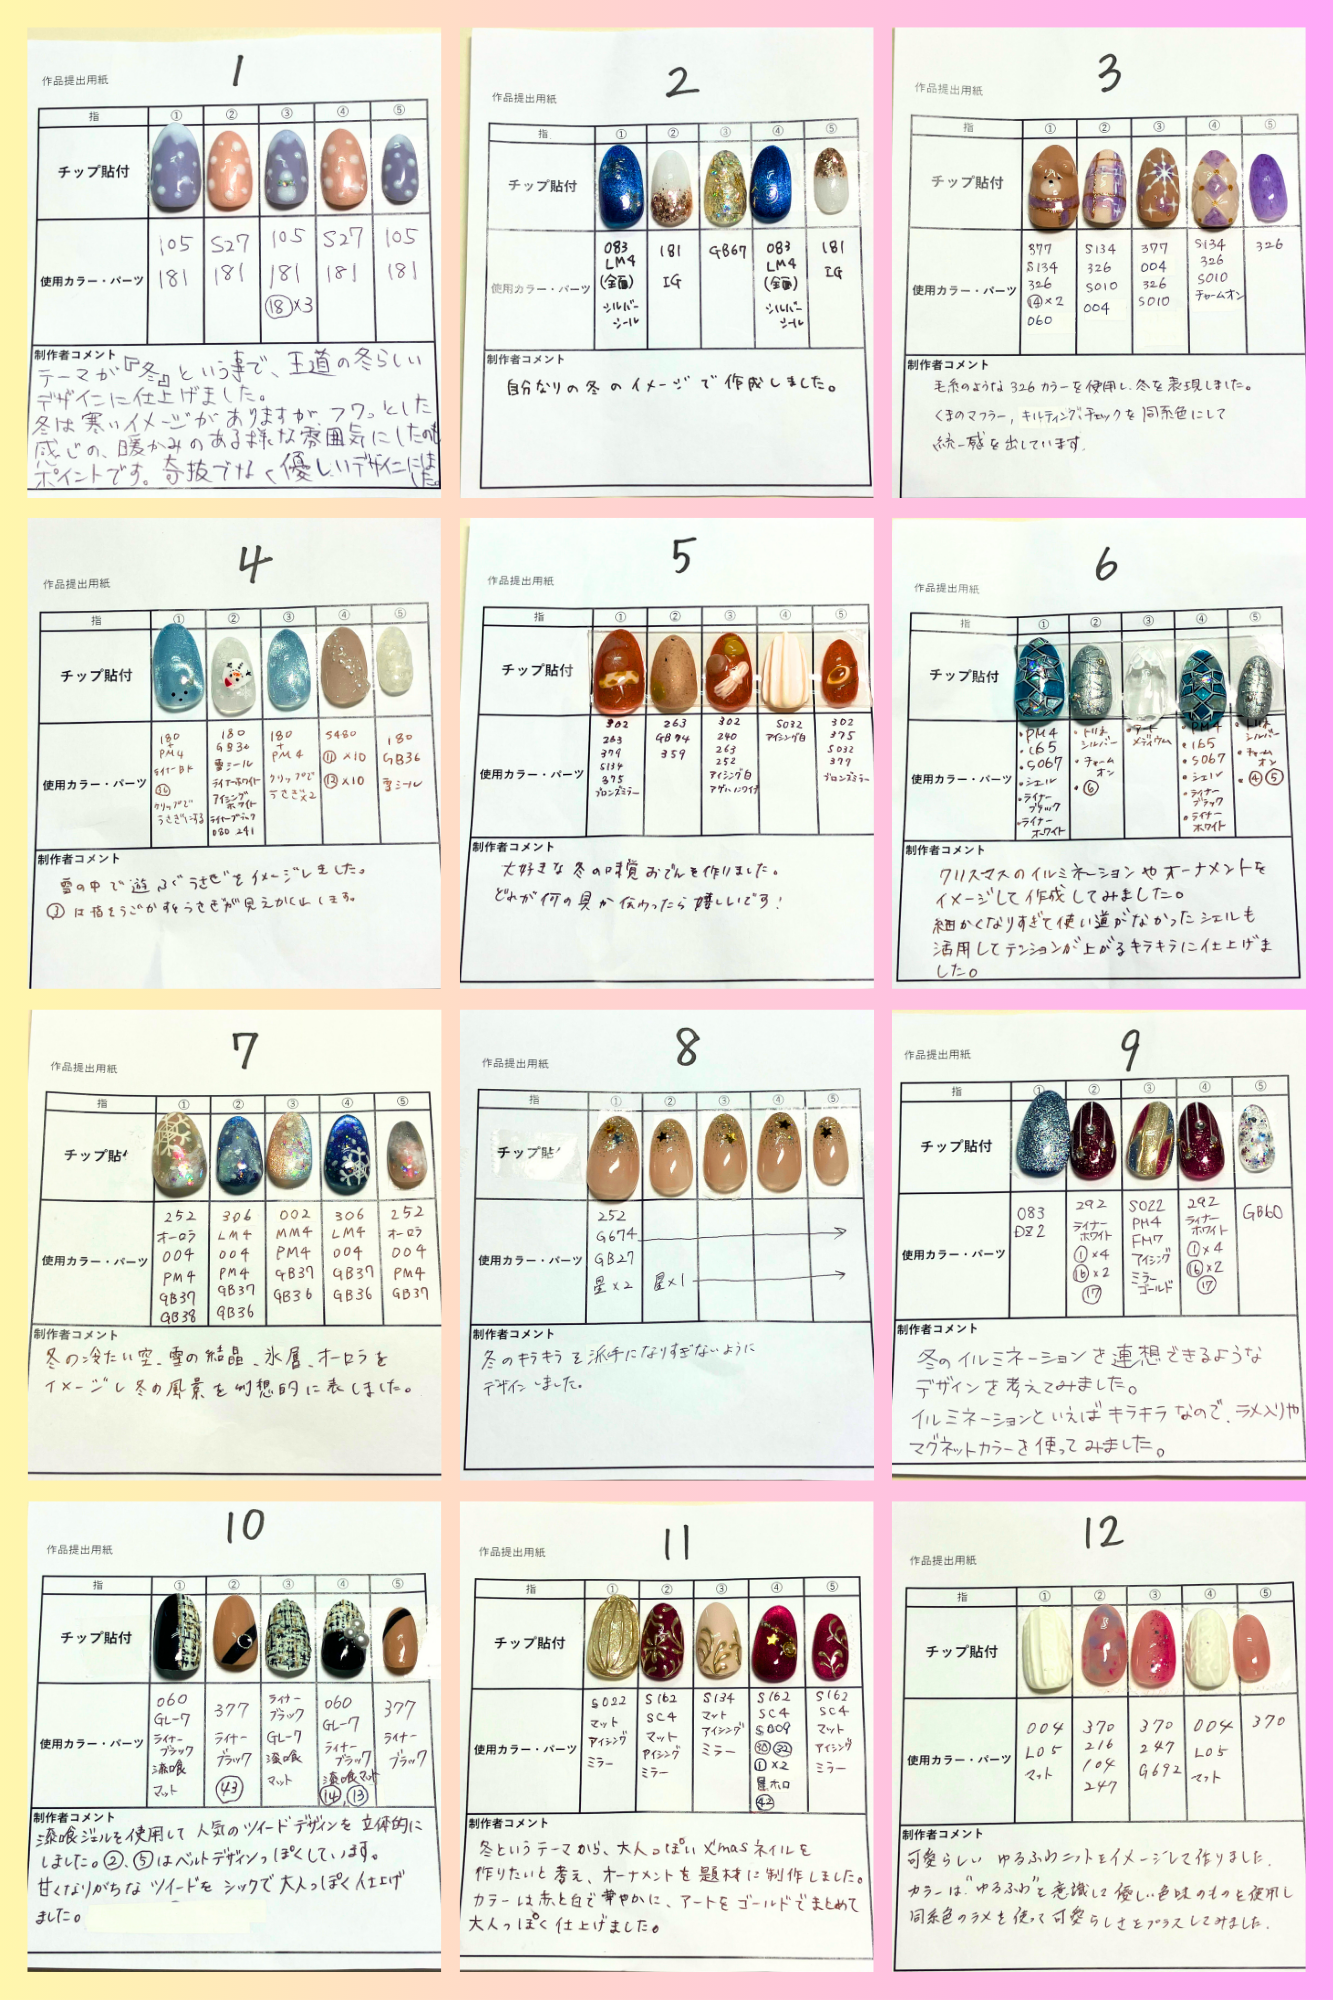 1
作品提出用紙
指 ① ② ③ ④ ⑤
チップ貼付
使用カラー・パーツ
105 S27 105 S27 105
181 181 181 181 181
⑱×3
制作者コメント
テーマが『冬』という事で、王道の冬らしい
デザインに仕上げました。
冬は寒いイメージがありますが、フワっとした
感じの、暖かみのある様な雰囲気にしたのも
ポイントです。奇抜でなく優しいデザインにしました。
2
作品提出用紙
指 ① ② ③ ④ ⑤
チップ貼付
使用カラー・パーツ
083 181 GB67 083 181
LM4 IG LM4 IG
(全面) (全面)
シルバー シルバー
シール シール
制作者コメント
自分なりの冬のイメージで作成しました。
3
作品提出用紙
指 ① ② ③ ④ ⑤
チップ貼付
使用カラー・パーツ
377 S134 377 S134 326
S134 326 004 326
326 S010 326 S010
⑭×2 004 S010 チャームオン
060
制作者コメント
毛糸のような326カラーを使用し、冬を表現しました。
くまのマフラー，キルティング，チェックを同系色にして
統一感を出しています。
4
作品提出用紙
指 ① ② ③ ④ ⑤
チップ貼付
使用カラー・パーツ
180 180 180 S480 180
+ GB36 + ⑪×10 GB36
PM4 雪シール PM4 ⑬×10 雪シール
ライナーホワイト
アイシング
ホワイト
ライナーブラック
080 241
クリップで クリップで
うさぎにする うさぎ×2
制作者コメント
雪の中で遊ぶうさぎをイメージしました。
③は指をうごかすとうさぎが見えかくれします。
5
作品提出用紙
指 ① ② ③ ④ ⑤
チップ貼付
使用カラー・パーツ
302 263 302 S032 302
263 GB94 240 アイシング白 375
379 359 263 S032
S134 252 377
375 アイシング白 ブロンズミラー
ブロンズミラー
制作者コメント
大好きな冬の味覚おでんを作りました。
どれが何の具か伝わったら嬉しいです！
6
作品提出用紙
指 ① ② ③ ④ ⑤
チップ貼付
使用カラー・パーツ
・PM4 ・PM4
・165 シルバー メディウム ・165 シルバー
・S067 ・チャーム ・S067 ・チャーム
・シェル オン ・シェル オン
・ライナー ・⑥ ・ライナー ・④⑤
ブラック ブラック
・ライナー ・ライナー
ホワイト ホワイト
制作者コメント
クリスマスのイルミネーションやオーナメントを
イメージして作成してみました。
細かくなりすぎて使い道がなかったシェルも
活用してテンションが上がるキラキラに仕上げま
した。
7
作品提出用紙
指 ① ② ③ ④ ⑤
チップ貼
使用カラー・パーツ
252 306 002 306 252
オーロラ LM4 MM4 LM4 オーロラ
004 004 PM4 004 004
PM4 PM4 GB37 GB37 PM4
GB37 GB37 GB36 GB36 GB37
GB38 GB36
制作者コメント
冬の冷たい空、雪の結晶、氷層、オーロラを
イメージし冬の風景を幻想的に表しました。
8
作品提出用紙
指 ① ② ③ ④ ⑤
チップ貼
使用カラー・パーツ
252
G674
GB27
星×2 星×1
制作者コメント
冬のキラキラを派手になりすぎないように
デザインしました。
9
作品提出用紙
指 ① ② ③ ④ ⑤
チップ貼付
使用カラー・パーツ
083 292 S022 292 GB60
DZ2 ライナー PM4 ライナー
ホワイト FM7 ホワイト
①×4 アイシング ①×4
⑯×2 ミラー ⑯×2
⑰ ゴールド ⑰
制作者コメント
冬のイルミネーションを連想できるような
デザインを考えてみました。
イルミネーションといえばキラキラなので、ラメ入りや
マグネットカラーを使ってみました。
10
作品提出用紙
指 ① ② ③ ④ ⑤
チップ貼付
使用カラー・パーツ
060 377 ライナー 060 377
GL-7 ライナー ブラック GL-7 ライナー
ライナー ブラック GL-7 ライナー ブラック
ブラック ㊸ 漆喰 ブラック
漆喰 マット 漆喰マット
マット ⑭,⑬
制作者コメント
漆喰ジェルを使用して人気のツイードデザインを立体的に
しました。②、⑤はベルトデザインっぽくしています。
甘くなりがちなツイードをシックで大人っぽく仕上げ
ました。
11
作品提出用紙
指 ① ② ③ ④ ⑤
チップ貼付
使用カラー・パーツ
S022 S162 S134 S162 S162
マット SC4 マット SC4 SC4
アイシング マット アイシング S009 マット
ミラー アイシング ミラー ㉚㉜ アイシング
ミラー ①×2 ミラー
星ホロ
㊷
制作者コメント
冬というテーマから、大人っぽいX'masネイルを
作りたいと考え、オーナメントを題材に制作しました。
カラーは赤と白で華やかに、アートをゴールドでまとめて
大人っぽく仕上げました。
12
作品提出用紙
指 ① ② ③ ④ ⑤
チップ貼付
使用カラー・パーツ
004 370 370 004 370
L05 216 247 L05
マット 104 G692 マット
247
制作者コメント
可愛らしい ゆるふわニットをイメージして作りました。
カラーは"ゆるふわ"を意識して優しい色味のものを使用し
同系色のラメを使って可愛らしさをプラスしてみました。